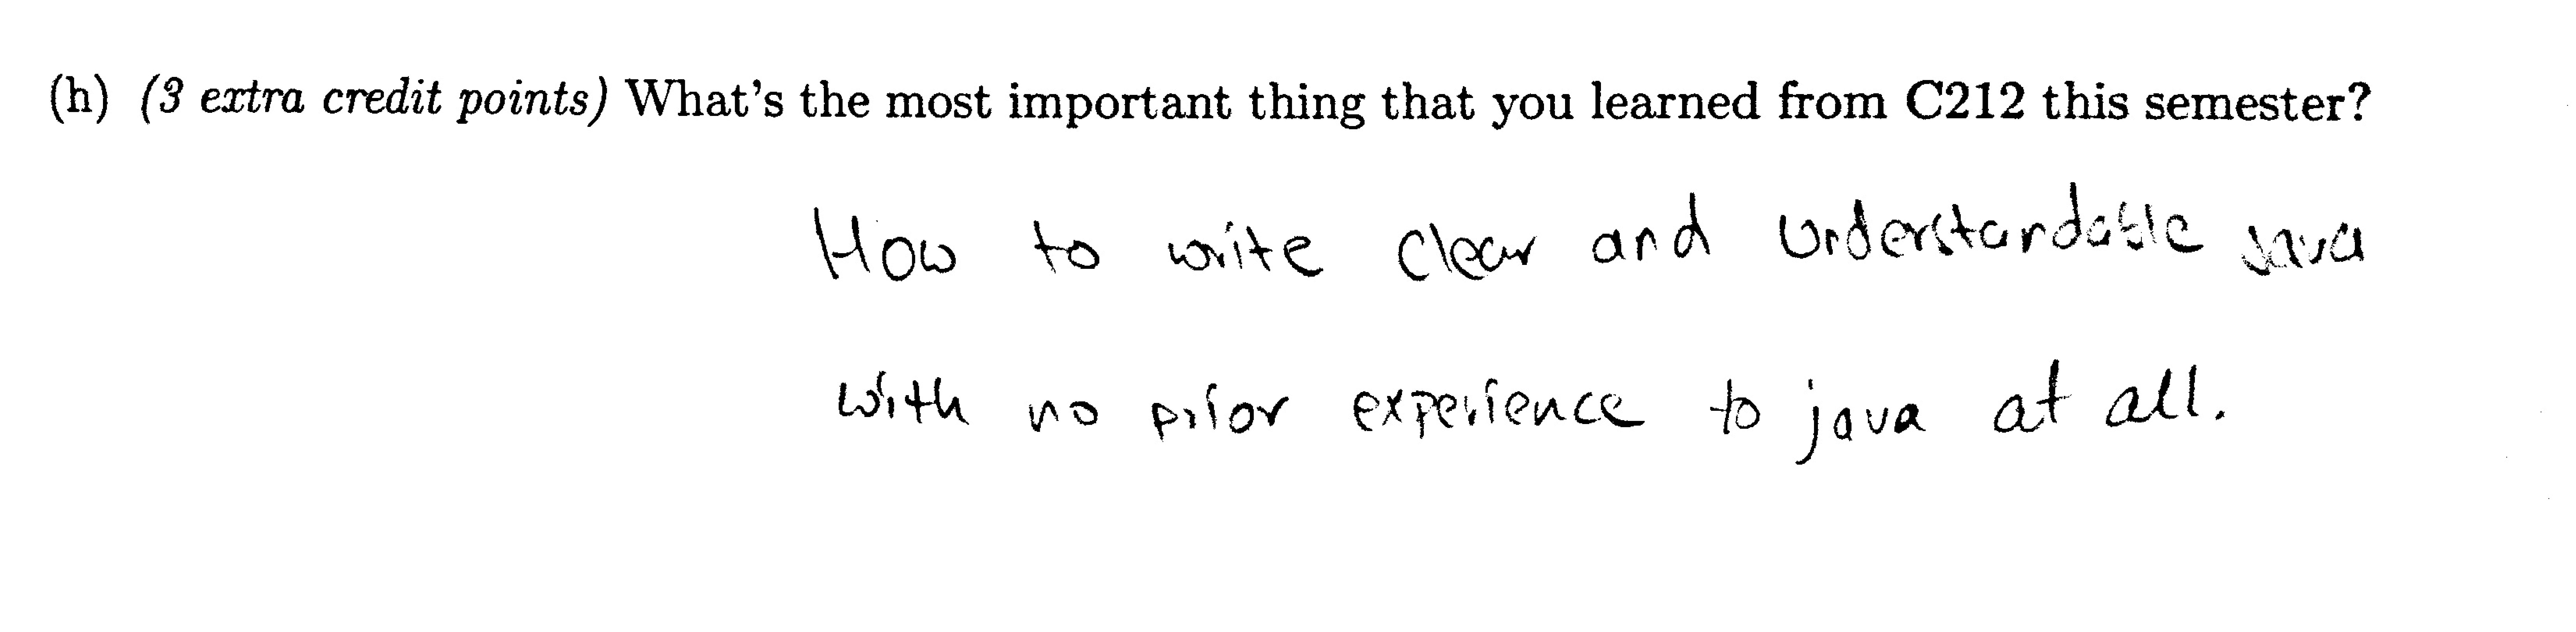 (h) (3 extra credit points) What's the most important thing that you learned from C212 this semester?
How to write clear and understandable java
with no prior experience to java at all.